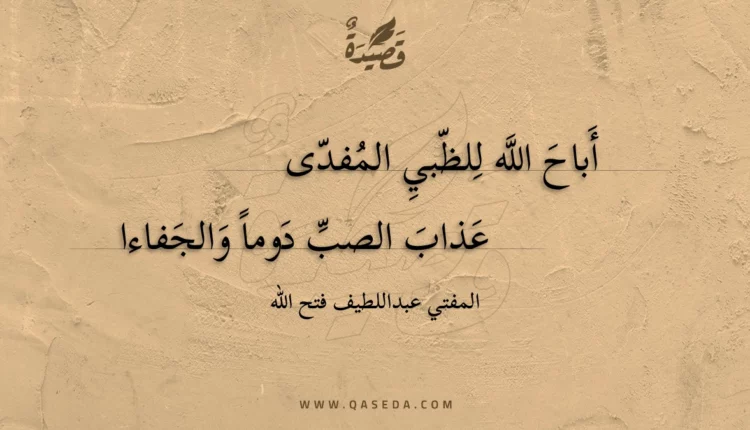 قَصِيدَةٌ
أَباحَ اللَّه لِلظّبيِ المُفدّى
عَذابَ الصبِّ دَوماً وَالجَفاءا
المفتي عبداللطيف فتح الله
WWW.QASEDA.COM